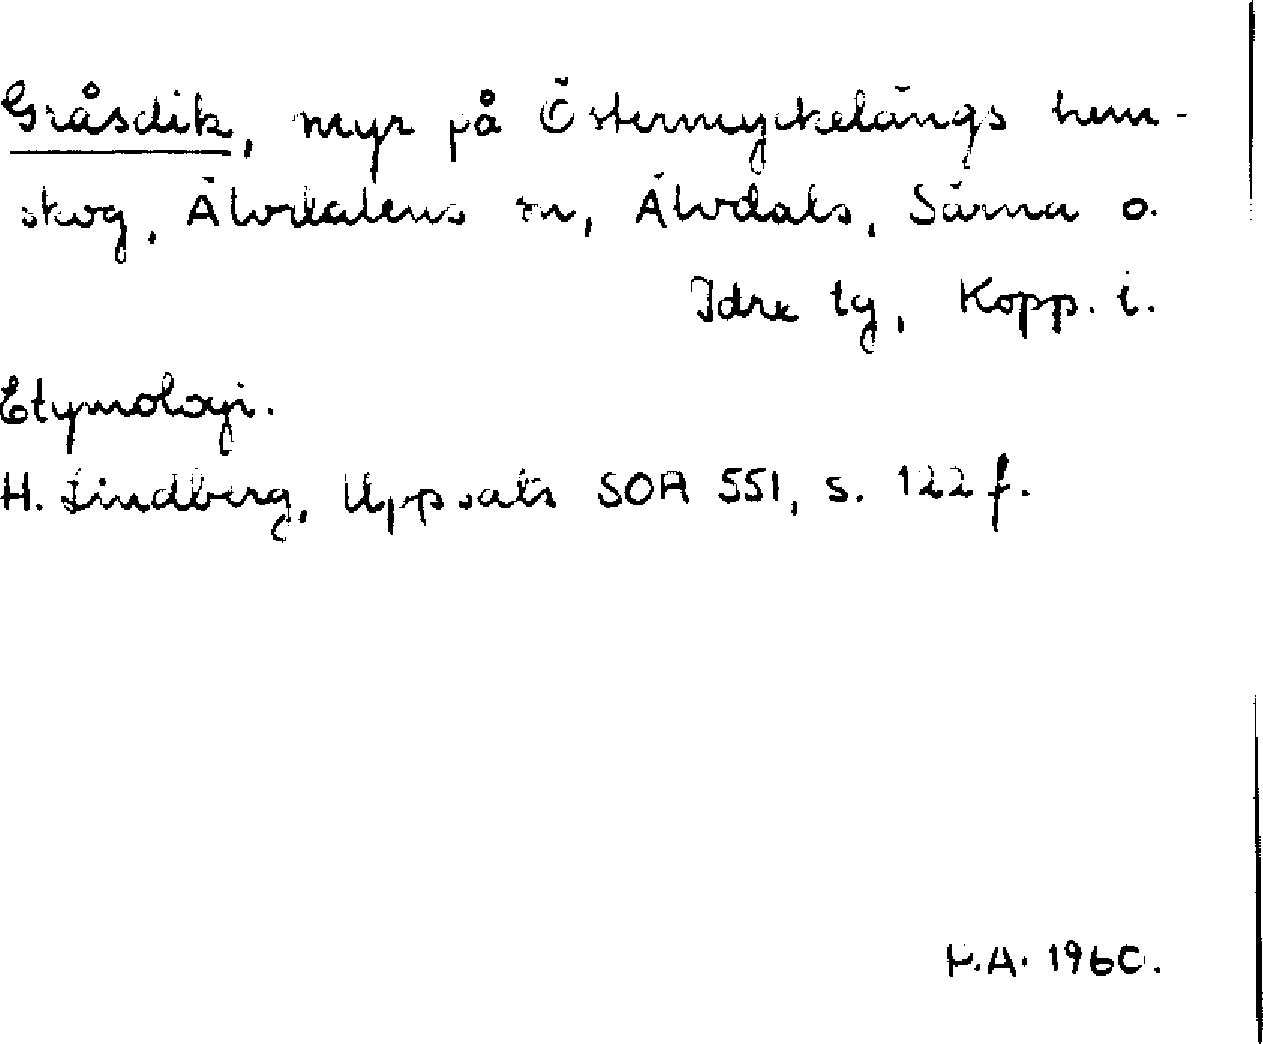 Gråsdik, myr på Östermyckelängs hem-
skog, Älvdalens sn, Älvdals, Särna o.
Idre tg, Kopp. l.
Etymologi.
H. Lindberg, Uppsats SOA 551, s. 122 f.
P.A. 1960.